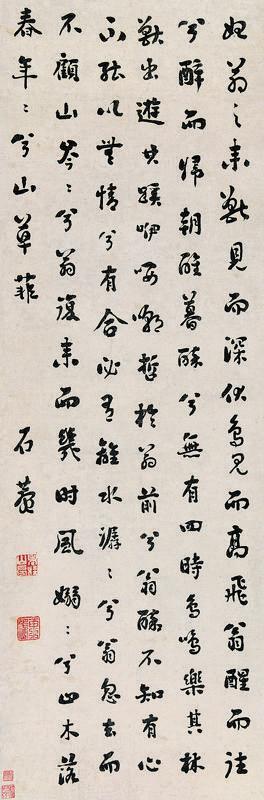 始翁之来獸見而深伏鳥見而高飛翁醒而往
兮醉而歸朝醒暮醉兮無有四時鳥鳴樂其林
獸出遊其蹊咿嚶啁哳於翁前兮翁醉不知有心
不能以無情兮有合必有離水潺〻兮翁忽去而
不顧山岑〻兮翁復来而幾時風嫋〻兮山木落
春年〻兮山草菲
石菴